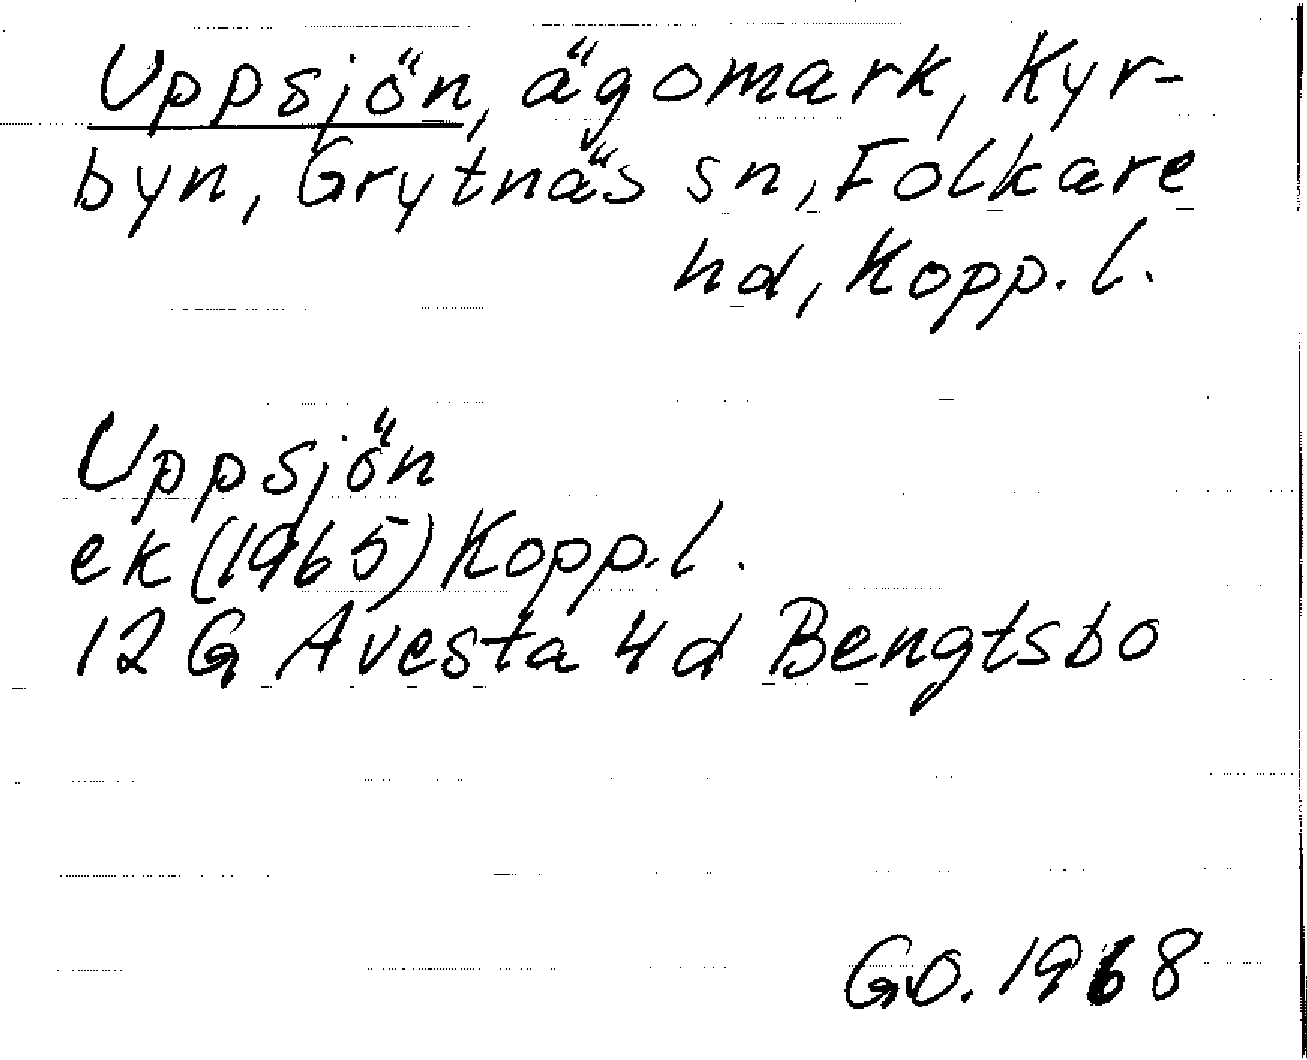 Uppsjön, ägomark, Kyr-
byn, Grytnäs sn, Folkare
hd, Kopp. l.
Uppsjön
ek (1965) Kopp. l.
12 G Avesta 4 d Bengtsbo
GO. 1968